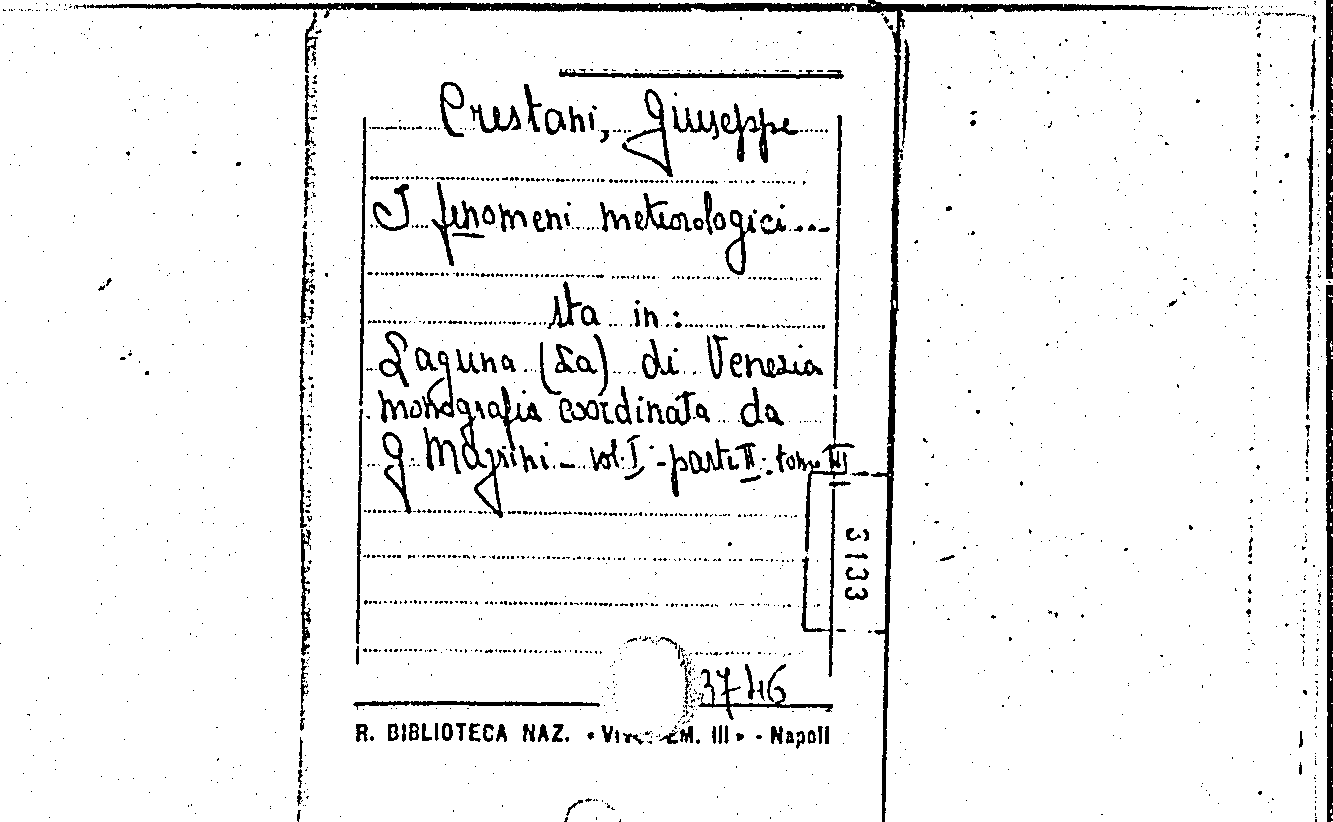 Crestani, Giuseppe
I fenomeni meteorologici...
sta in:
Laguna (La) di Venezia
monografia coordinata da
G. Magrini - vol. I - parte II. tomo III
3133
3746
R. BIBLIOTECA NAZ. « Vitt. EM. III » - Napoli